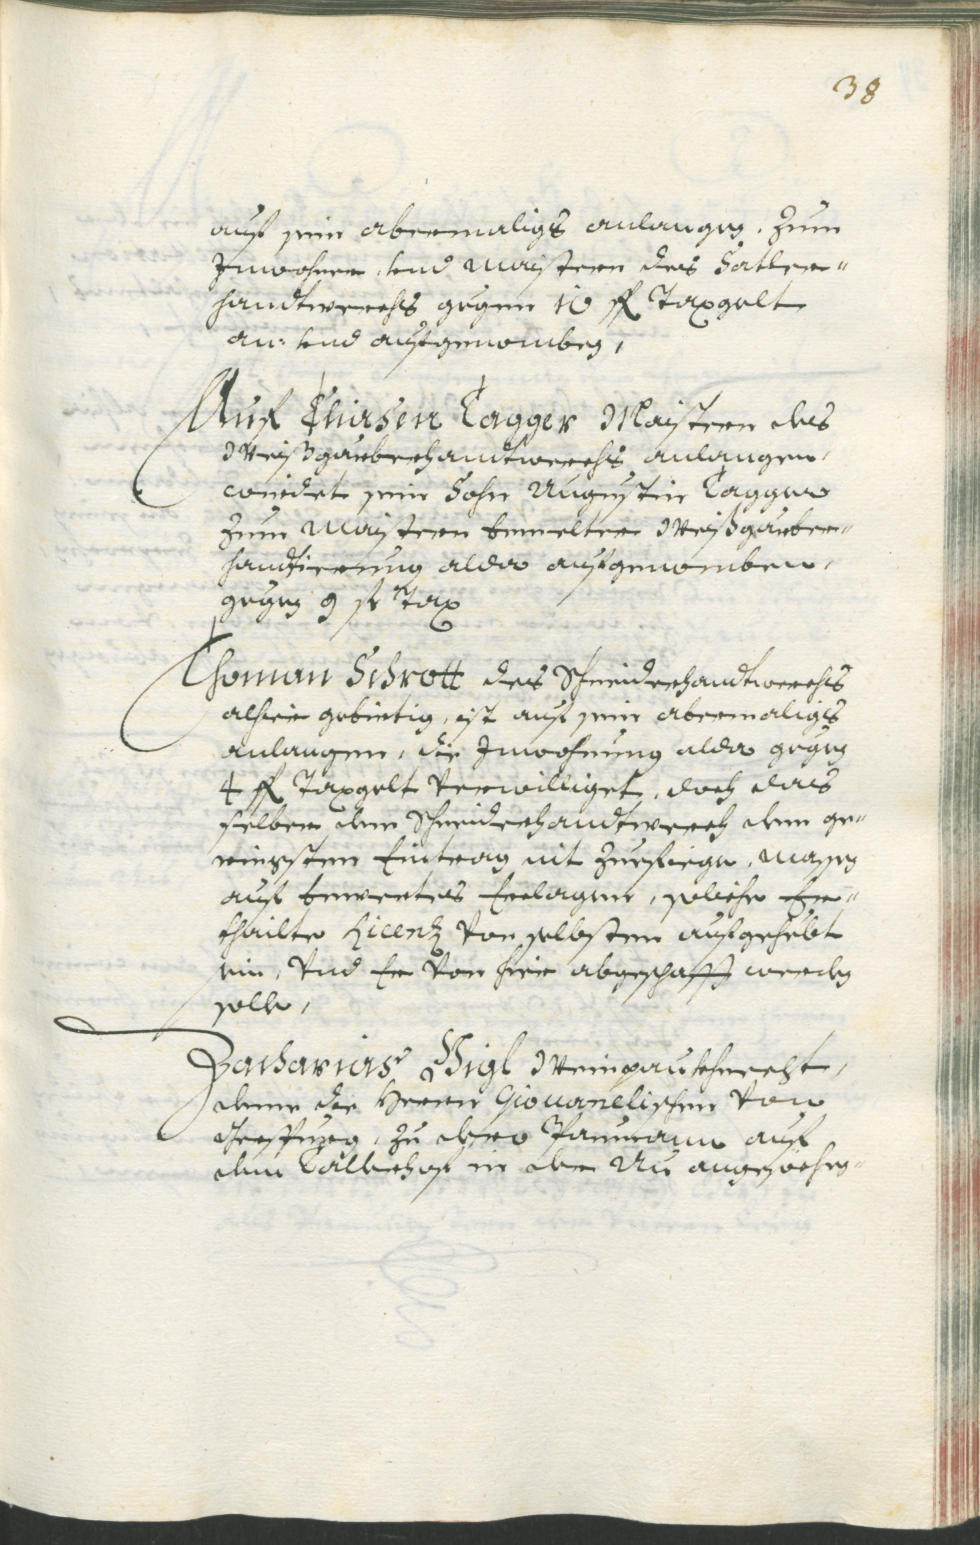 38
auf sein abermaligs anlangen, zum
Inwohner und Maistern des Satler-
handtwerchs gegen 10 fl Taxgelt
an: und aufgenomben,
Auf Thiasen Tagger Maistern des
Weißgärberhandtwerchs anlangen,
würdet sein Sohn Augustin Tagger
zum Maistern bemelter Weißgärber-
handtierung alda aufgenomben,
gegen 9 fl Tax
Thoman Schrott des Schneiderhandtwerchs
alhie gebirtig, ist auf sein abermaligs
anlangen, die Inwohnung alda gegen
4 fl Taxgelt verwilliget, doch das
selber dem Schneiderhandtwerch den ge-
ringsten Eintrag nit zuefiege, massen
auf widrigs Erclagen, solche Er-
thailte Licenz von selbsten aufgehebt
sein, und Er von hie abgeschafft werden
solle,
Zacharias Sigl Weinpauknecht,
deme die Herrn Giovanelischen von
zu dero Paumann auf
dem Kalkhof in der Au angenohmen-